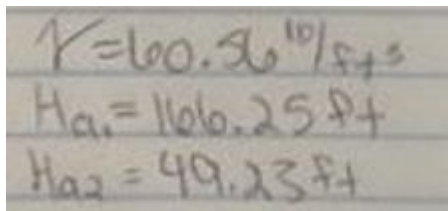 γ=60.56 lb/ft³
Ha1=166.25 ft
Ha2 = 49.23 ft